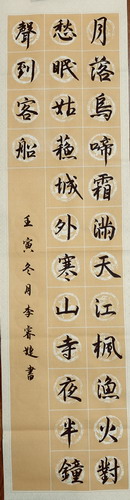 月落烏啼霜滿天江楓漁火對
愁眠姑蘇城外寒山寺夜半鐘
聲到客船
壬寅冬月李睿婕書